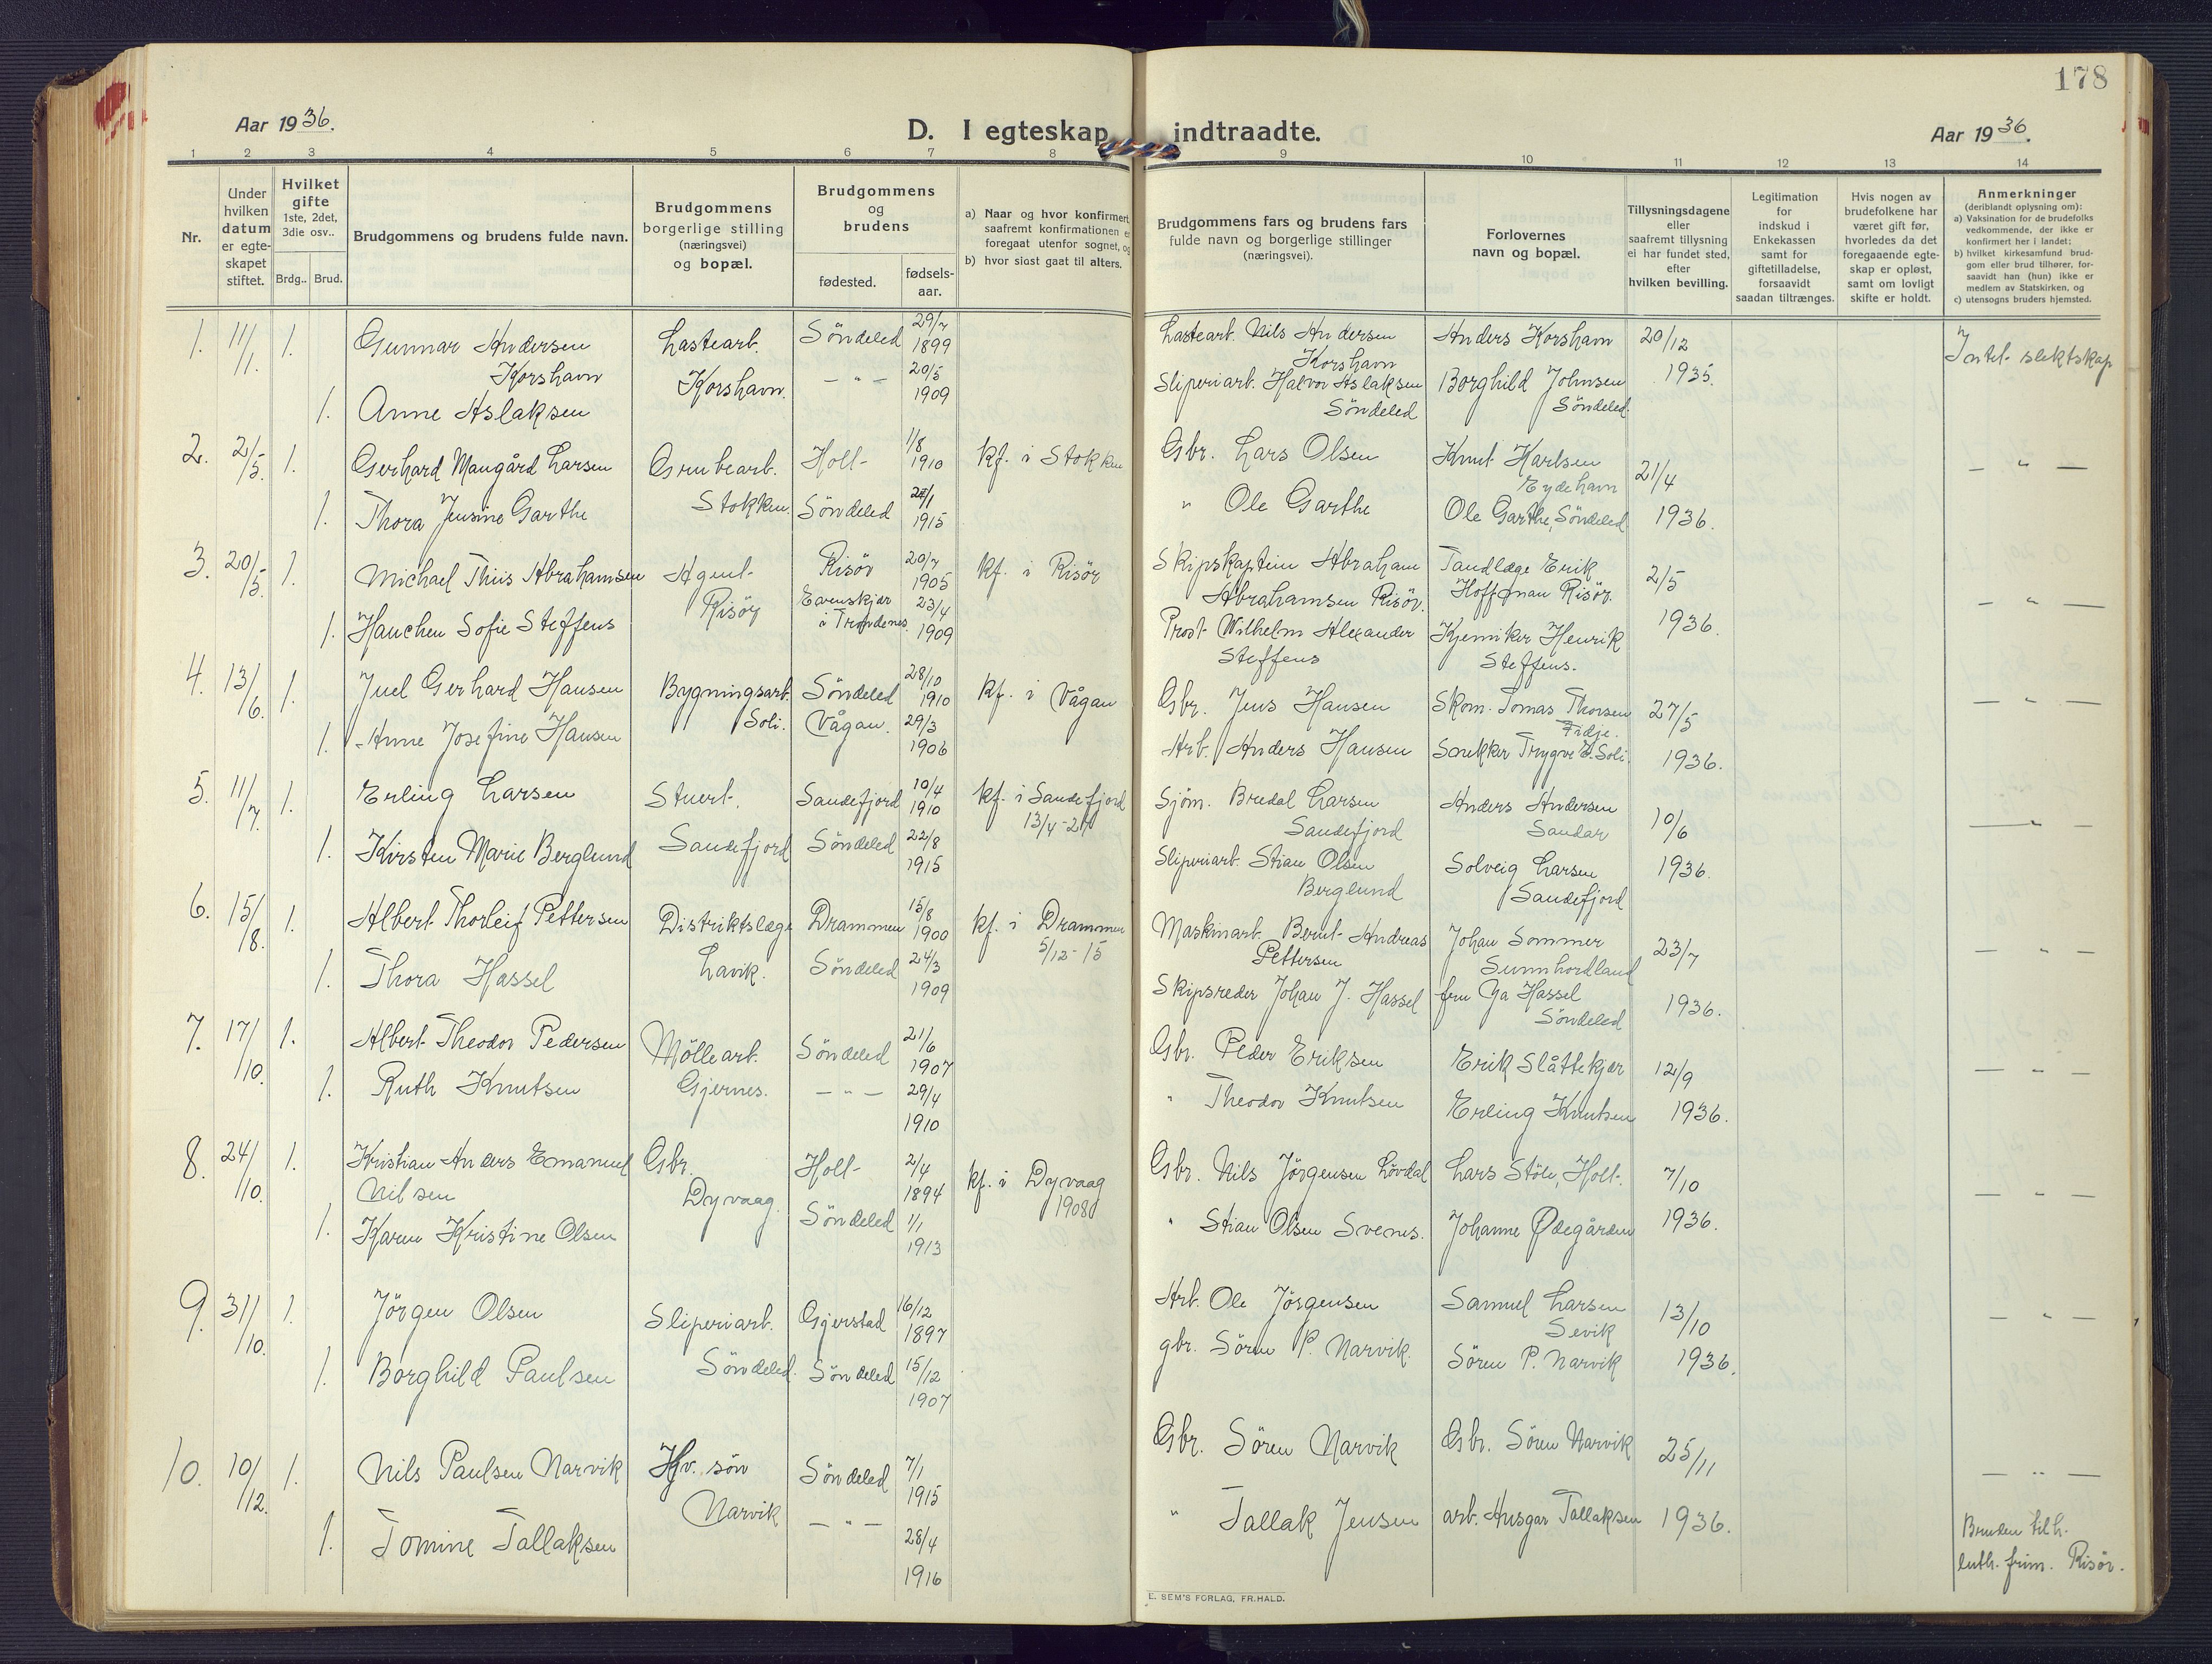 178
Aar 1936.
D. I egteskap indtraadte.
Aar 1936.
1 2 3 4 5 6 7 8 9 10 11 12 13 14
Nr.
Under hvilken datum er egteskapet stiftet.
Hvilket gifte 1ste, 2det, 3die osv..
Brdg.. Brud.
Brudgommens og brudens fulde navn.
Brudgommens borgerlige stilling (næringsvei) og bopæl.
Brudgommens og brudens
fødested.
fødsels-aar.
a) Naar og hvor konfirmert saafremt konfirmationen er foregaat utenfor sognet, og
b) hvor sist gaat til alters.
Brudgommens fars og brudens fars fulde navn og borgerlige stillinger (næringsvei).
Forlovernes navn og bopæl.
Tillysningsdagene eller saafremt tillysning ei har fundet sted, efter hvilken bevilling.
Legitimation for indskud i Enkekassen samt for giftetilladelse, forsaavidt saadan tiltrænges.
Hvis nogen av brudefolkene har været gift før, hvorledes da det foregaaende egteskap er opløst, samt om lovligt skifte er holdt.
Anmerkninger (deriblandt oplysning om):
a) Vaksination for de brudefolks vedkommende, der ikke er konfirmert her i landet;
b) hvilket kirkesamfund brudgom eller brud tilhører, forsaavidt han (hun) ikke er medlem av Statskirken, og
c) utensogns bruders hjemsted.
1. 11/1. 1. Gunnar Andersen Korshavn Lastearb. Korshavn. Söndeled 29/7 1899 Lastearb. Nils Andersen Korshavn Anders Korshavn 20/12 1935. Intet slektskap
1. Anne Aslaksen — " — 20/5 1909 Sliperiarb. Halvor Aslaksen Söndeled Borghild Johnsen Söndeled.
2. 2/5. 1. Gerhard Maugård Larsen Grubearb. Stokken. Holt 1/8 1910 kf. i Stokken Gbr. Lars Olsen Knut Karlsen Eydehavn 21/4 1936. — " —
1. Thora Jensine Garthe Söndeled 1915 " Ole Garthe Ole Garthe, Söndeled
3. 20/5. 1. Michael Thiis Abrahamsen Agent Risör Risör 20/7 1905 kf. i Risör Skipskaptein Abraham Abrahamsen Risör. Tandlæge Erik Hoffman Risör. 2/5 1936. — " —
1. Hanchen Sofie Steffens Evenskjær i Trondenes 23/4 1909 Prost Wilhelm Alexander Steffens Kjemiker Henrik Steffens.
4. 13/6. 1. Juel Gerhard Hansen Bygningsarb. Soli. Söndeled 28/10 1910 kf. i Vågan Gbr. Jens Hansen Skom. Tomas Thorsen Fidje. 27/5 1936. — " —
1. Anne Josefine Hansen Vågan. 29/3 1906 Arb. Anders Hansen Snekker Trygve E. Soli.
5. 11/7. 1. Erling Larsen Stuert, Sandefjord Sandefjord 10/4 1910 kf. i Sandefjord 13/4-27 Sjöm. Bredal Larsen Sandefjord Anders Andersen Sandar 10/6 1936. — " —
1. Kirsten Marie Berglund Söndeled 22/8 1915 Sliperiarb. Stian Olsen Berglund Solveig Larsen Sandefjord
6. 15/8. 1. Albert Thorleif Pettersen Distriktslæge Lavik. Drammen 15/8 1900 kf. i Drammen 5/12-15 Maskinarb. Bernt Andreas Pettersen Johan Sommer Sunnhordland 23/7 1936. — " —
1. Thora Hassel Söndeled 24/3 1909 Skipsreder Johan J. Hassel fru Ya Hassel Söndeled
7. 17/10. 1. Albert Theodor Pedersen Möllearb. Gjernes. Söndeled 21/6 1907 Gbr. Peder Eriksen Erik Slåttekjær 12/9 1936. — " —
1. Ruth Knutsen — " — 29/4 1910 " Theodor Knutsen Erling Knutsen
8. 24/10. 1. Kristian Anders Emanuel Nilsen Gbr. Dyvaag. Holt 2/4 1894 kf. i Dyvaag 1908 Gbr. Nils Jörgensen Lövdal Lars Stöle, Holt. 7/10 1936. — " —
1. Karen Kristine Olsen Söndeled 1/1 1913 " Stian Olsen Svenes. Johanne Ødegården
9. 31/10. 1. Jörgen Olsen Sliperiarb. Söndeled. Gjerstad 16/12 1897 Arb. Ole Jörgensen Samuel Larsen Sevik 13/10 1936. — " —
1. Borghild Paulsen Söndeled 15/12 1907 gbr. Sören P. Narvik. Sören P. Narvik
10. 10/12. 1. Nils Paulsen Narvik Hv. sön Narvik Söndeled 7/1 1915 Gbr. Sören Narvik Gbr. Sören Narvik 25/11 1936. — " —
1. Tomine Tallaksen — " — 28/4 1916 " Tallak Jensen arb. Ansgar Tallaksen Bruden tilh. luth. frim. Risör.
E. SEM'S FORLAG, FR.HALD.